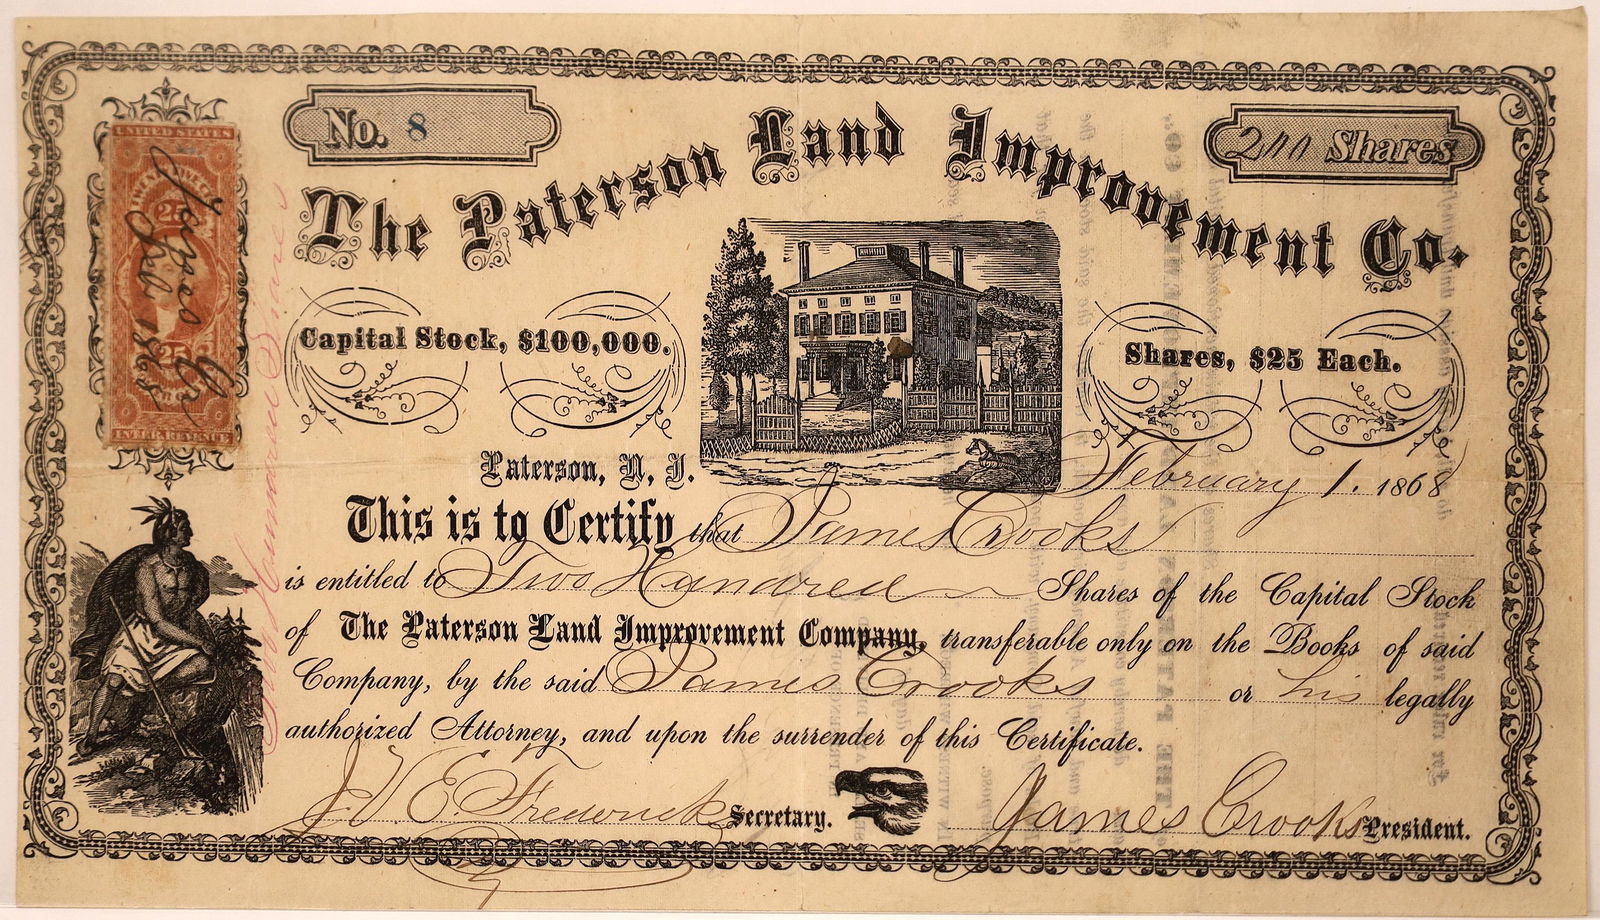 No. 8
200 Shares
The Paterson Land Improvement Co.
UNITED STATES
25
James Cr
Feb 1868
25
INTER. REVENUE
Two Hundred Shares
Capital Stock, $100,000.
Shares, $25 Each.
Paterson, N. J. February 1. 1868
This is to Certify that James Crooks
is entitled to Two Hundred Shares of the Capital Stock
of The Paterson Land Improvement Company, transferable only on the Books of said
Company, by the said James Crooks or his legally
authorized Attorney, and upon the surrender of this Certificate.
J. V. E. Frederick Secretary.
James Crooks President.